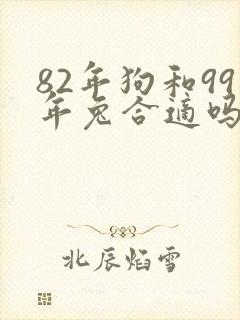 82年狗和99
年兔合适吗
北辰焰雪